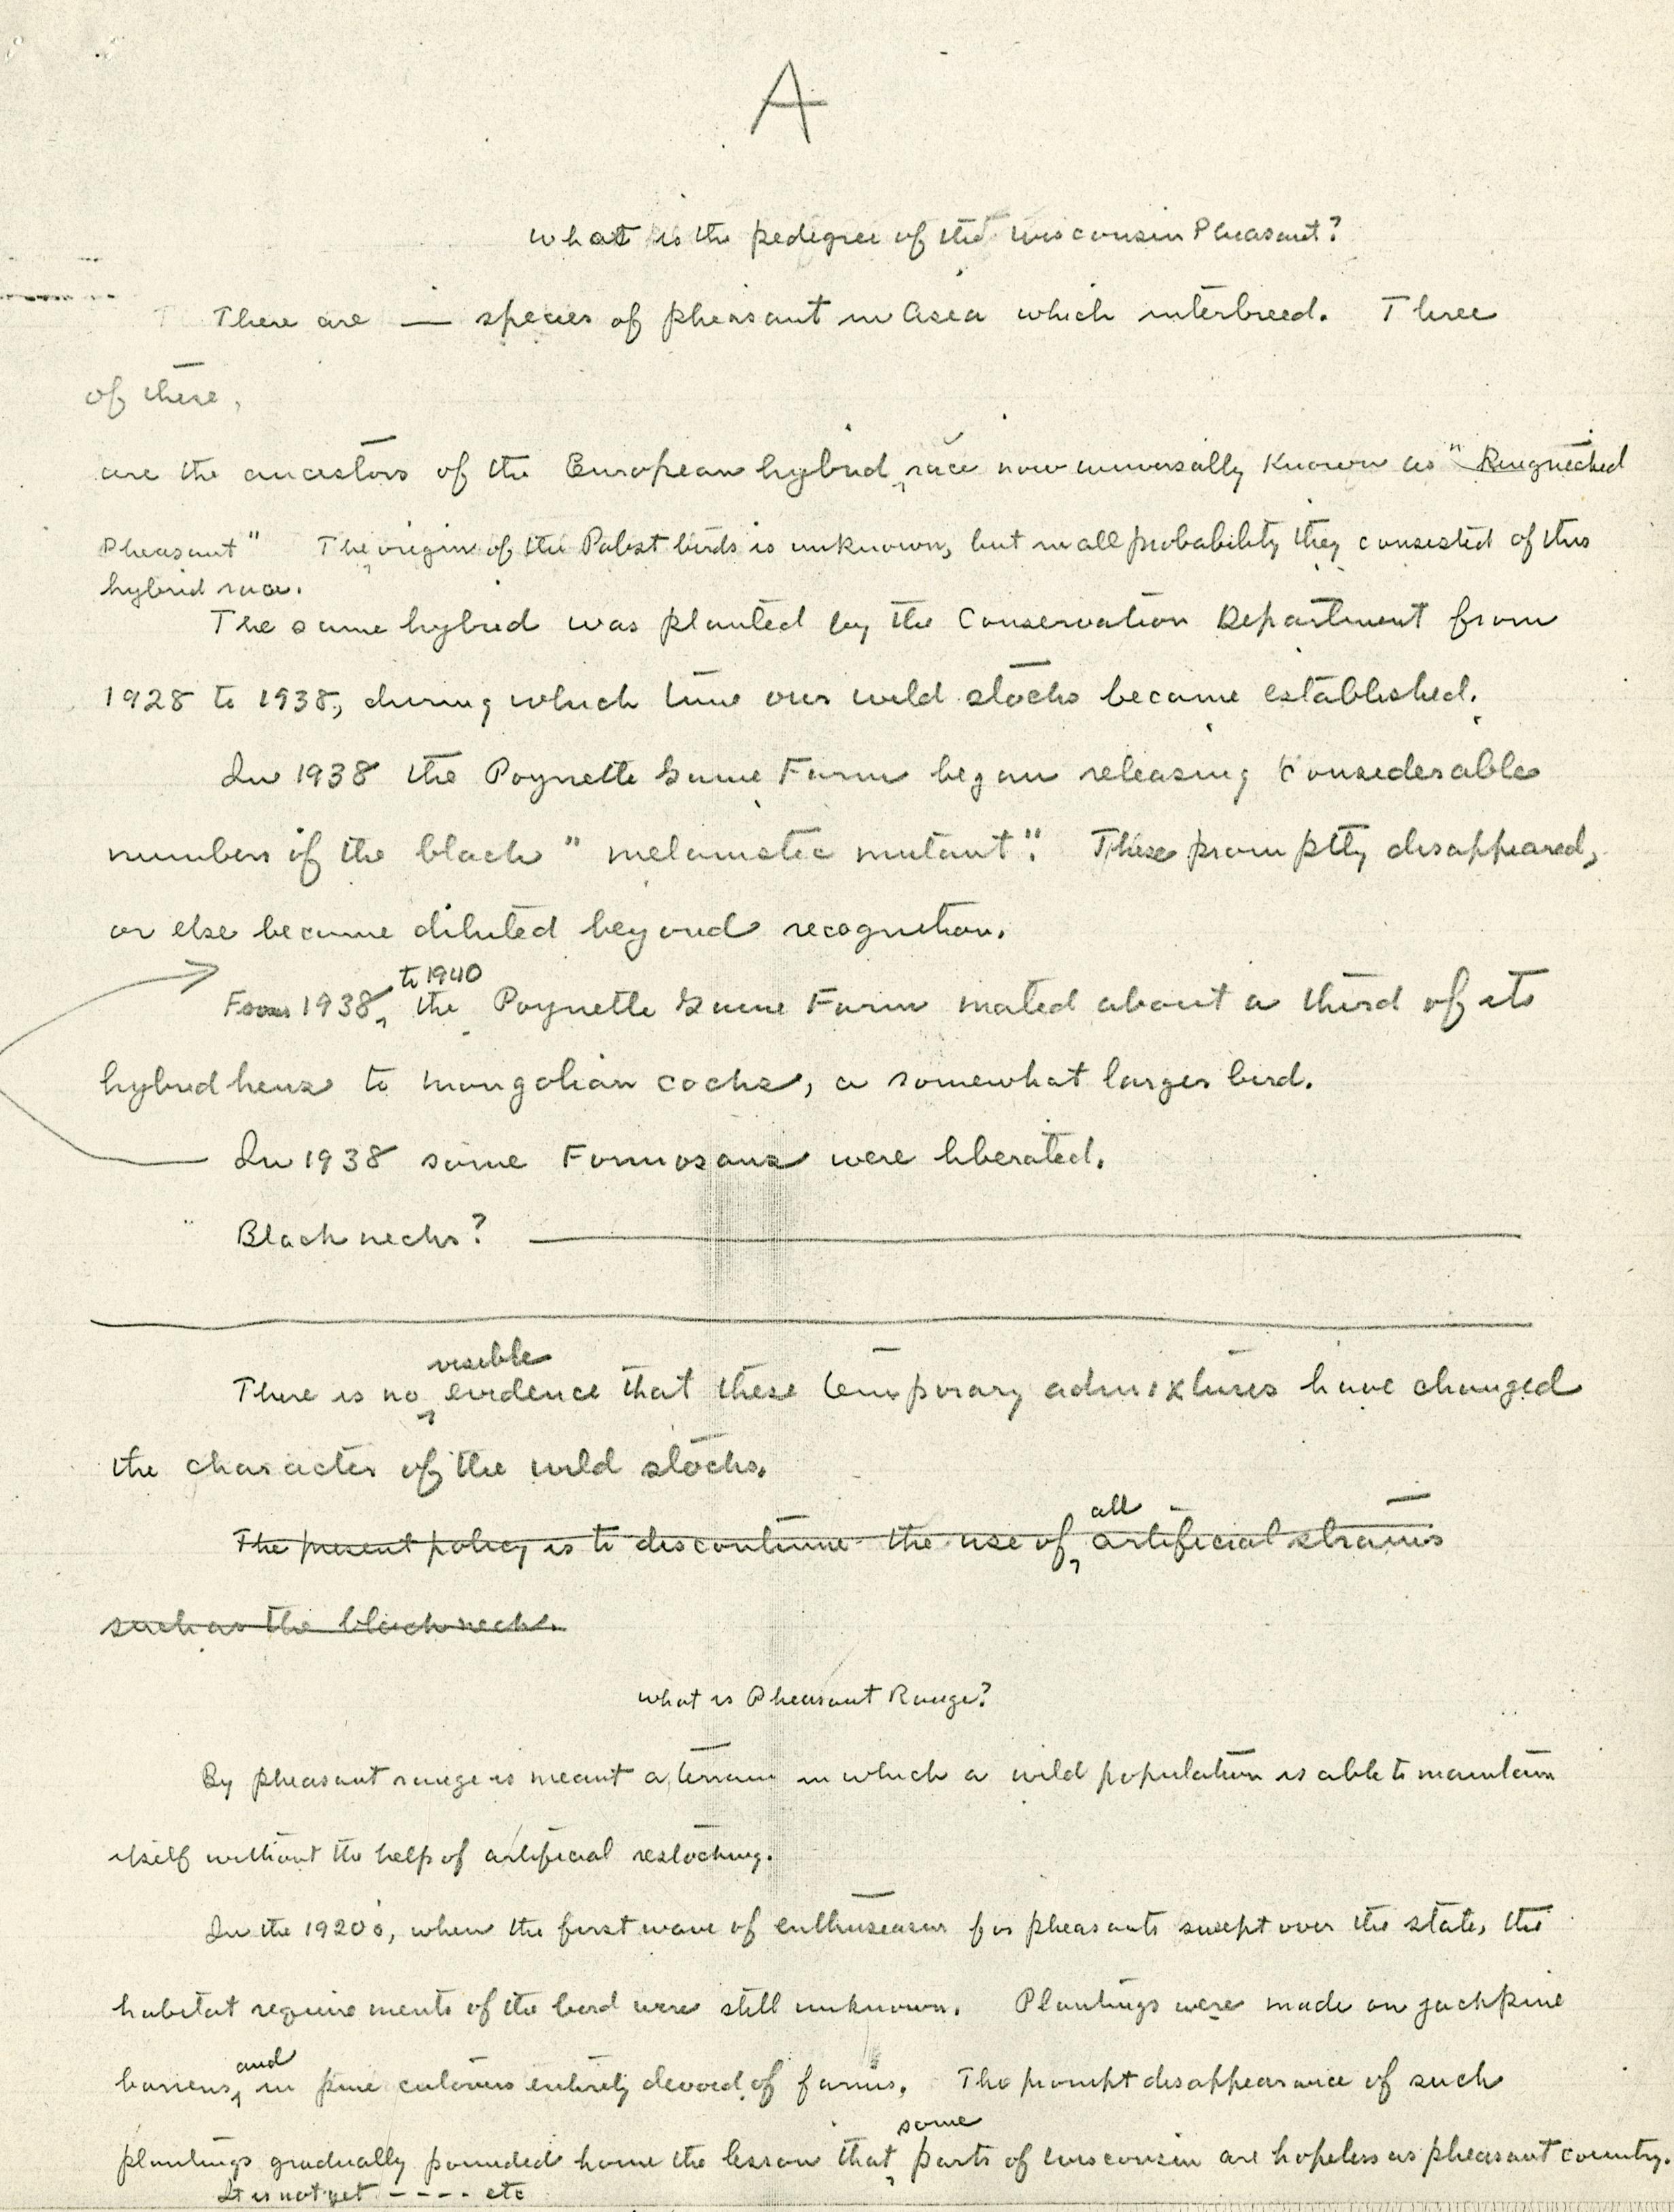 A
What is the pedigree of the Wisconsin Pheasant?
There are — species of pheasant in Asia which interbreed. Three
of these,
are the ancestors of the European hybrid race now universally known as "Ringnecked
Pheasant" The origin of the Pabst birds is unknown, but in all probability they consisted of this
hybrid race.
The same hybrid was planted by the Conservation Department from
1928 to 1938, during which time our wild stocks became established.
In 1938 the Poynette Game Farm began releasing considerable
numbers of the black "melanistic mutant". These promptly disappeared,
or else became diluted beyond recognition.
to 1940
From 1938, the Poynette Game Farm mated about a third of its
hybrid hens to mongolian cocks, a somewhat larger bird.
In 1938 some Formosans were liberated.
Blacknecks?
visible
There is no evidence that these temporary admixtures have changed
the character of the wild stocks.
all
The present policy is to discontinue the use of artificial strains
such as the blacknecks.
What is Pheasant Range?
By pheasant range is meant a terrain in which a wild population is able to maintain
itself without the help of artificial restocking.
In the 1920's, when the first wave of enthusiasm for pheasants swept over the state, the
habitat requirements of the bird were still unknown. Plantings were made on jackpine
and
barrens, in pine cutovers entirely devoid of farms. The prompt disappearance of such
some
plantings gradually pounded home the lesson that parts of Wisconsin are hopeless as pheasant country.
It is not yet - - - - etc